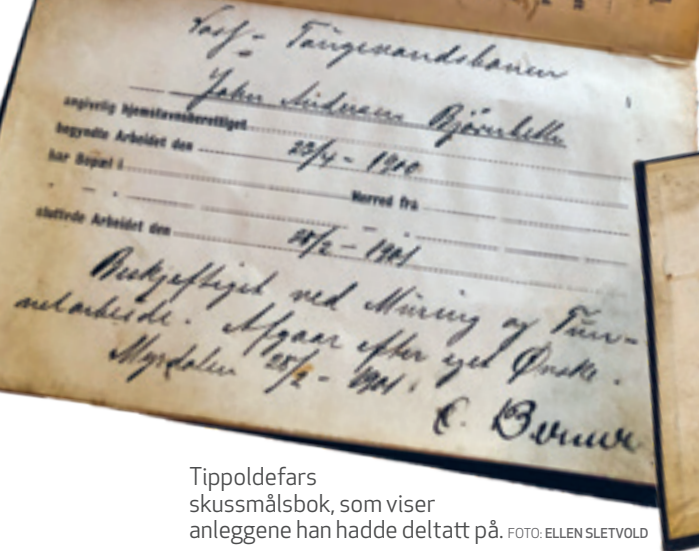 Voss - Taugevandsbanen
John Andersen Bjørnbette
angivelig hjemstavnsberettiget
begyndte Arbeidet den 23/4 - 1900
har Bopæl i Herred fra
- " - "
sluttede Arbeidet den 28/2 - 1901
Beskjeftiget ved Muring og Tun-
nelarbeide. Afgaar efter eget Ønske.
Myrdalen 28/2 - 1901.
C. Berner
Tippoldefars
skussmålsbok, som viser
anleggene han hadde deltatt på. FOTO: ELLEN SLETVOLD